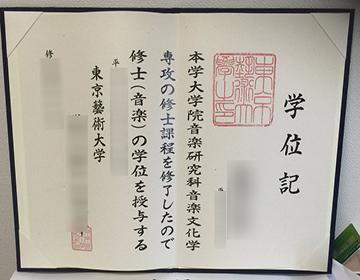 学位記
本学大学院音楽研究科音楽文化学
専攻の修士課程を修了したので
修士(音楽)の学位を授与する
平
東京藝術大学
修